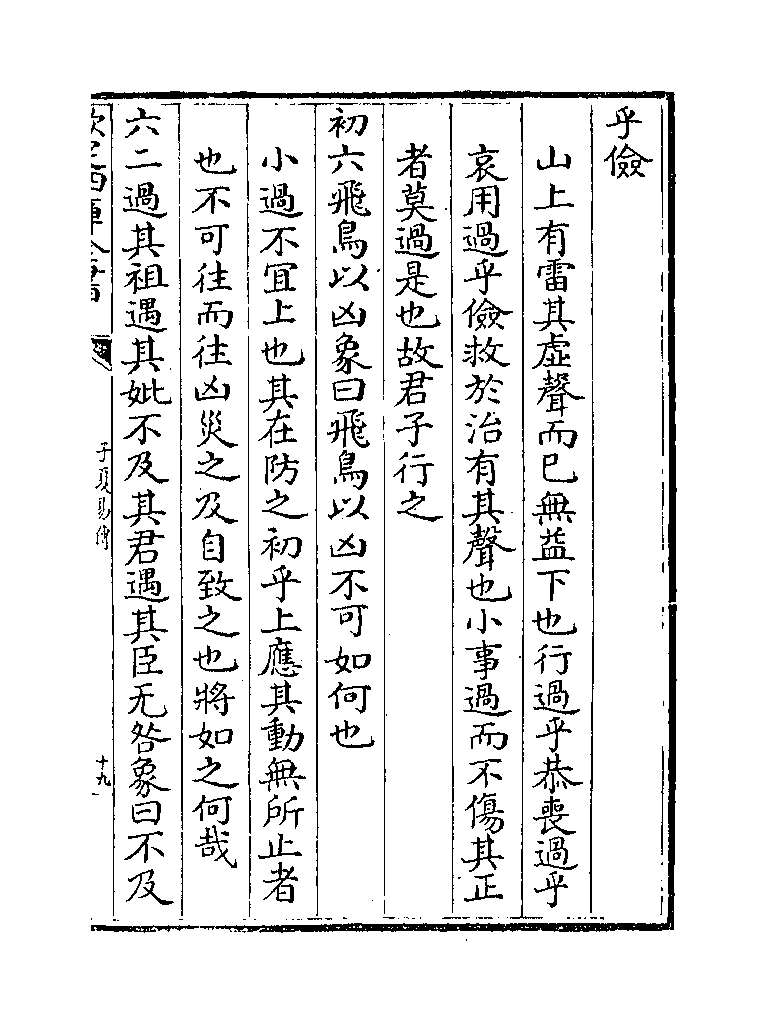 乎儉
山上有雷其虛聲而已無益下也行過乎恭喪過乎
哀用過乎儉救於治有其聲也小事過而不傷其正
者莫過是也故君子行之
初六飛鳥以凶象曰飛鳥以凶不可如何也
小過不冝上也其在防之初乎上應其動無所止者
也不可往而往凶災之及自致之也將如之何哉
六二過其祖遇其妣不及其君遇其臣无咎象曰不及
欽定四庫全書
子夏易傳
十九